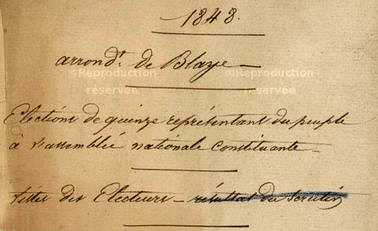 1848.
arrondt. de Blaye
Elections de quinze représentant du peuple
à l'assemblée nationale constituante
Listes des Electeurs - résultat du scrutin
© Reproduction réservée © Reproduction réservée